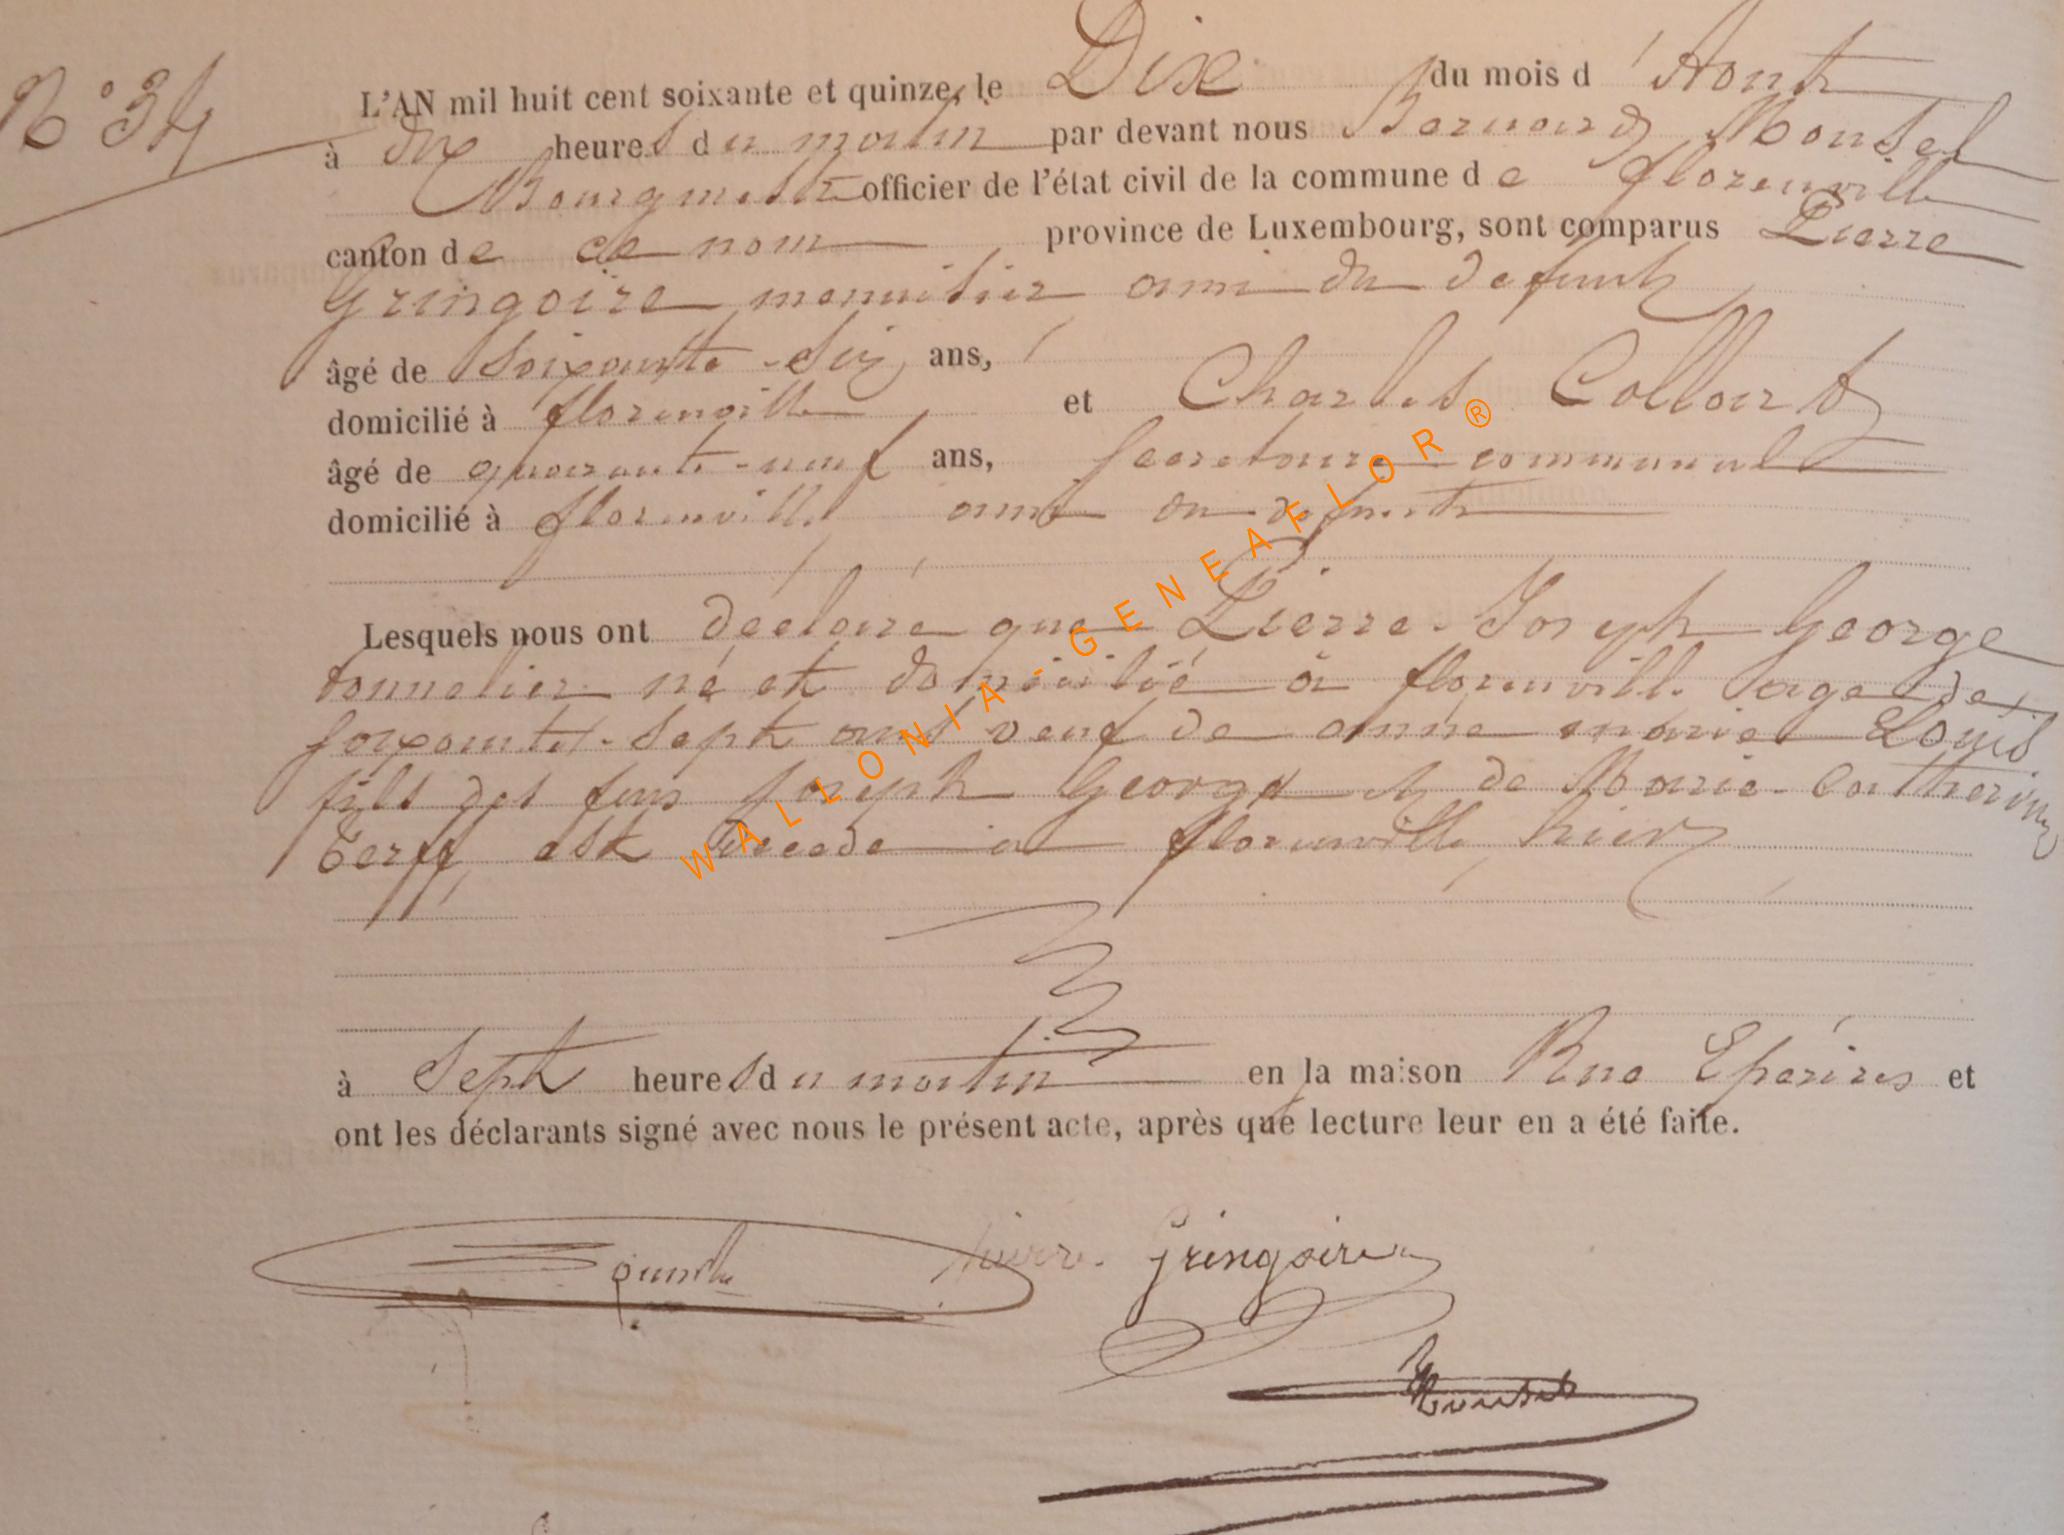 N° 34
L'AN mil huit cent soixante et quinze, le Dix du mois d'Aout
à dix heures du matin par devant nous Bernard Mousel
Bourgmestre officier de l'état civil de la commune de florenville
canton de ce nom province de Luxembourg, sont comparus Pierre
Gringoire menuisier ami du defunt
âgé de soixante-six ans,
domicilié à florenville et Charles Collard
âgé de quarante-neuf ans, secretaire communal
domicilié à florenville ami du defunt
Lesquels nous ont déclaré que Pierre-Joseph George
tonnelier né et domicilié à florenville age de
soixante-sept ans veuf de anne marie Louis
fils des feus Joseph George et de Marie-Catherine
est decede a florenville hier
à sept heures du matin en la maison Rue et
ont les déclarants signé avec nous le présent acte, après que lecture leur en a été faite.
Pierre Gringoire
Mousel
WALLONIA-GENEAFLOR®